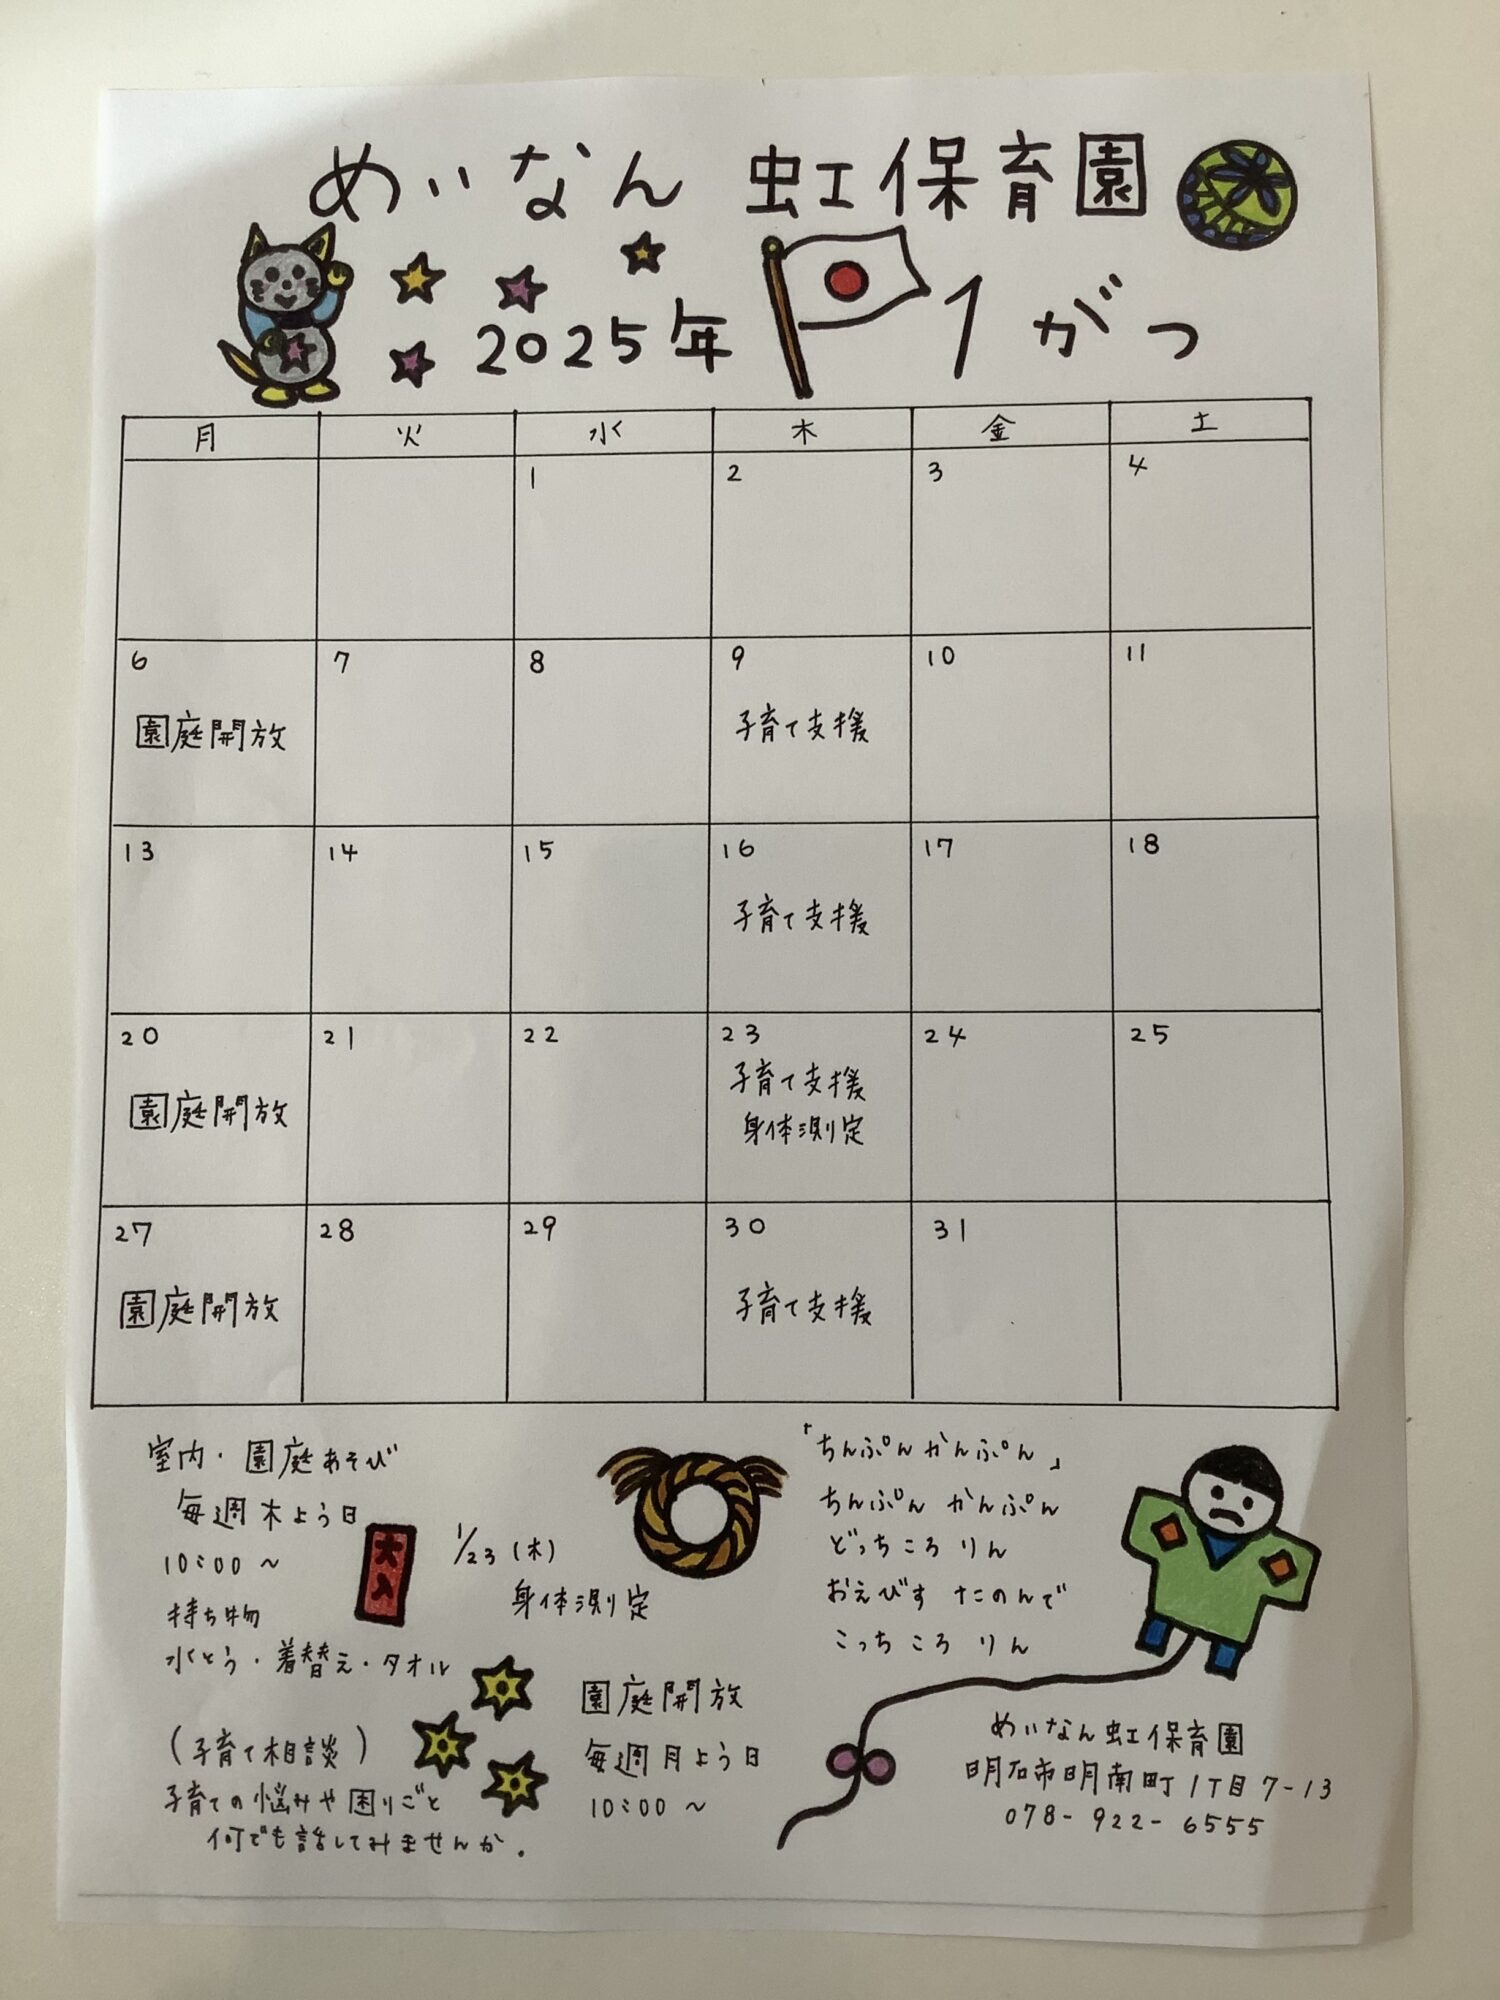 めいなん 虹保育園
2025年 1がつ
月 火 水 木 金 土
1 2 3 4
6 7 8 9 10 11
園庭開放 子育て支援
13 14 15 16 17 18
子育て支援
20 21 22 23 24 25
園庭開放 子育て支援
身体測定
27 28 29 30 31
園庭開放 子育て支援
室内・園庭あそび
毎週木よう日
10:00～
持ち物
水とう・着替え・タオル
大入
1/23(木)
身体測定
(子育て相談)
子育ての悩みや困りごと
何でも話してみませんか。
園庭開放
毎週月よう日
10:00～
「ちんぷんかんぷん」
ちんぷん かんぷん
どっちころりん
おえびす たのんで
こっちころりん
めいなん虹保育園
明石市明南町1丁目7-13
078-922-6555